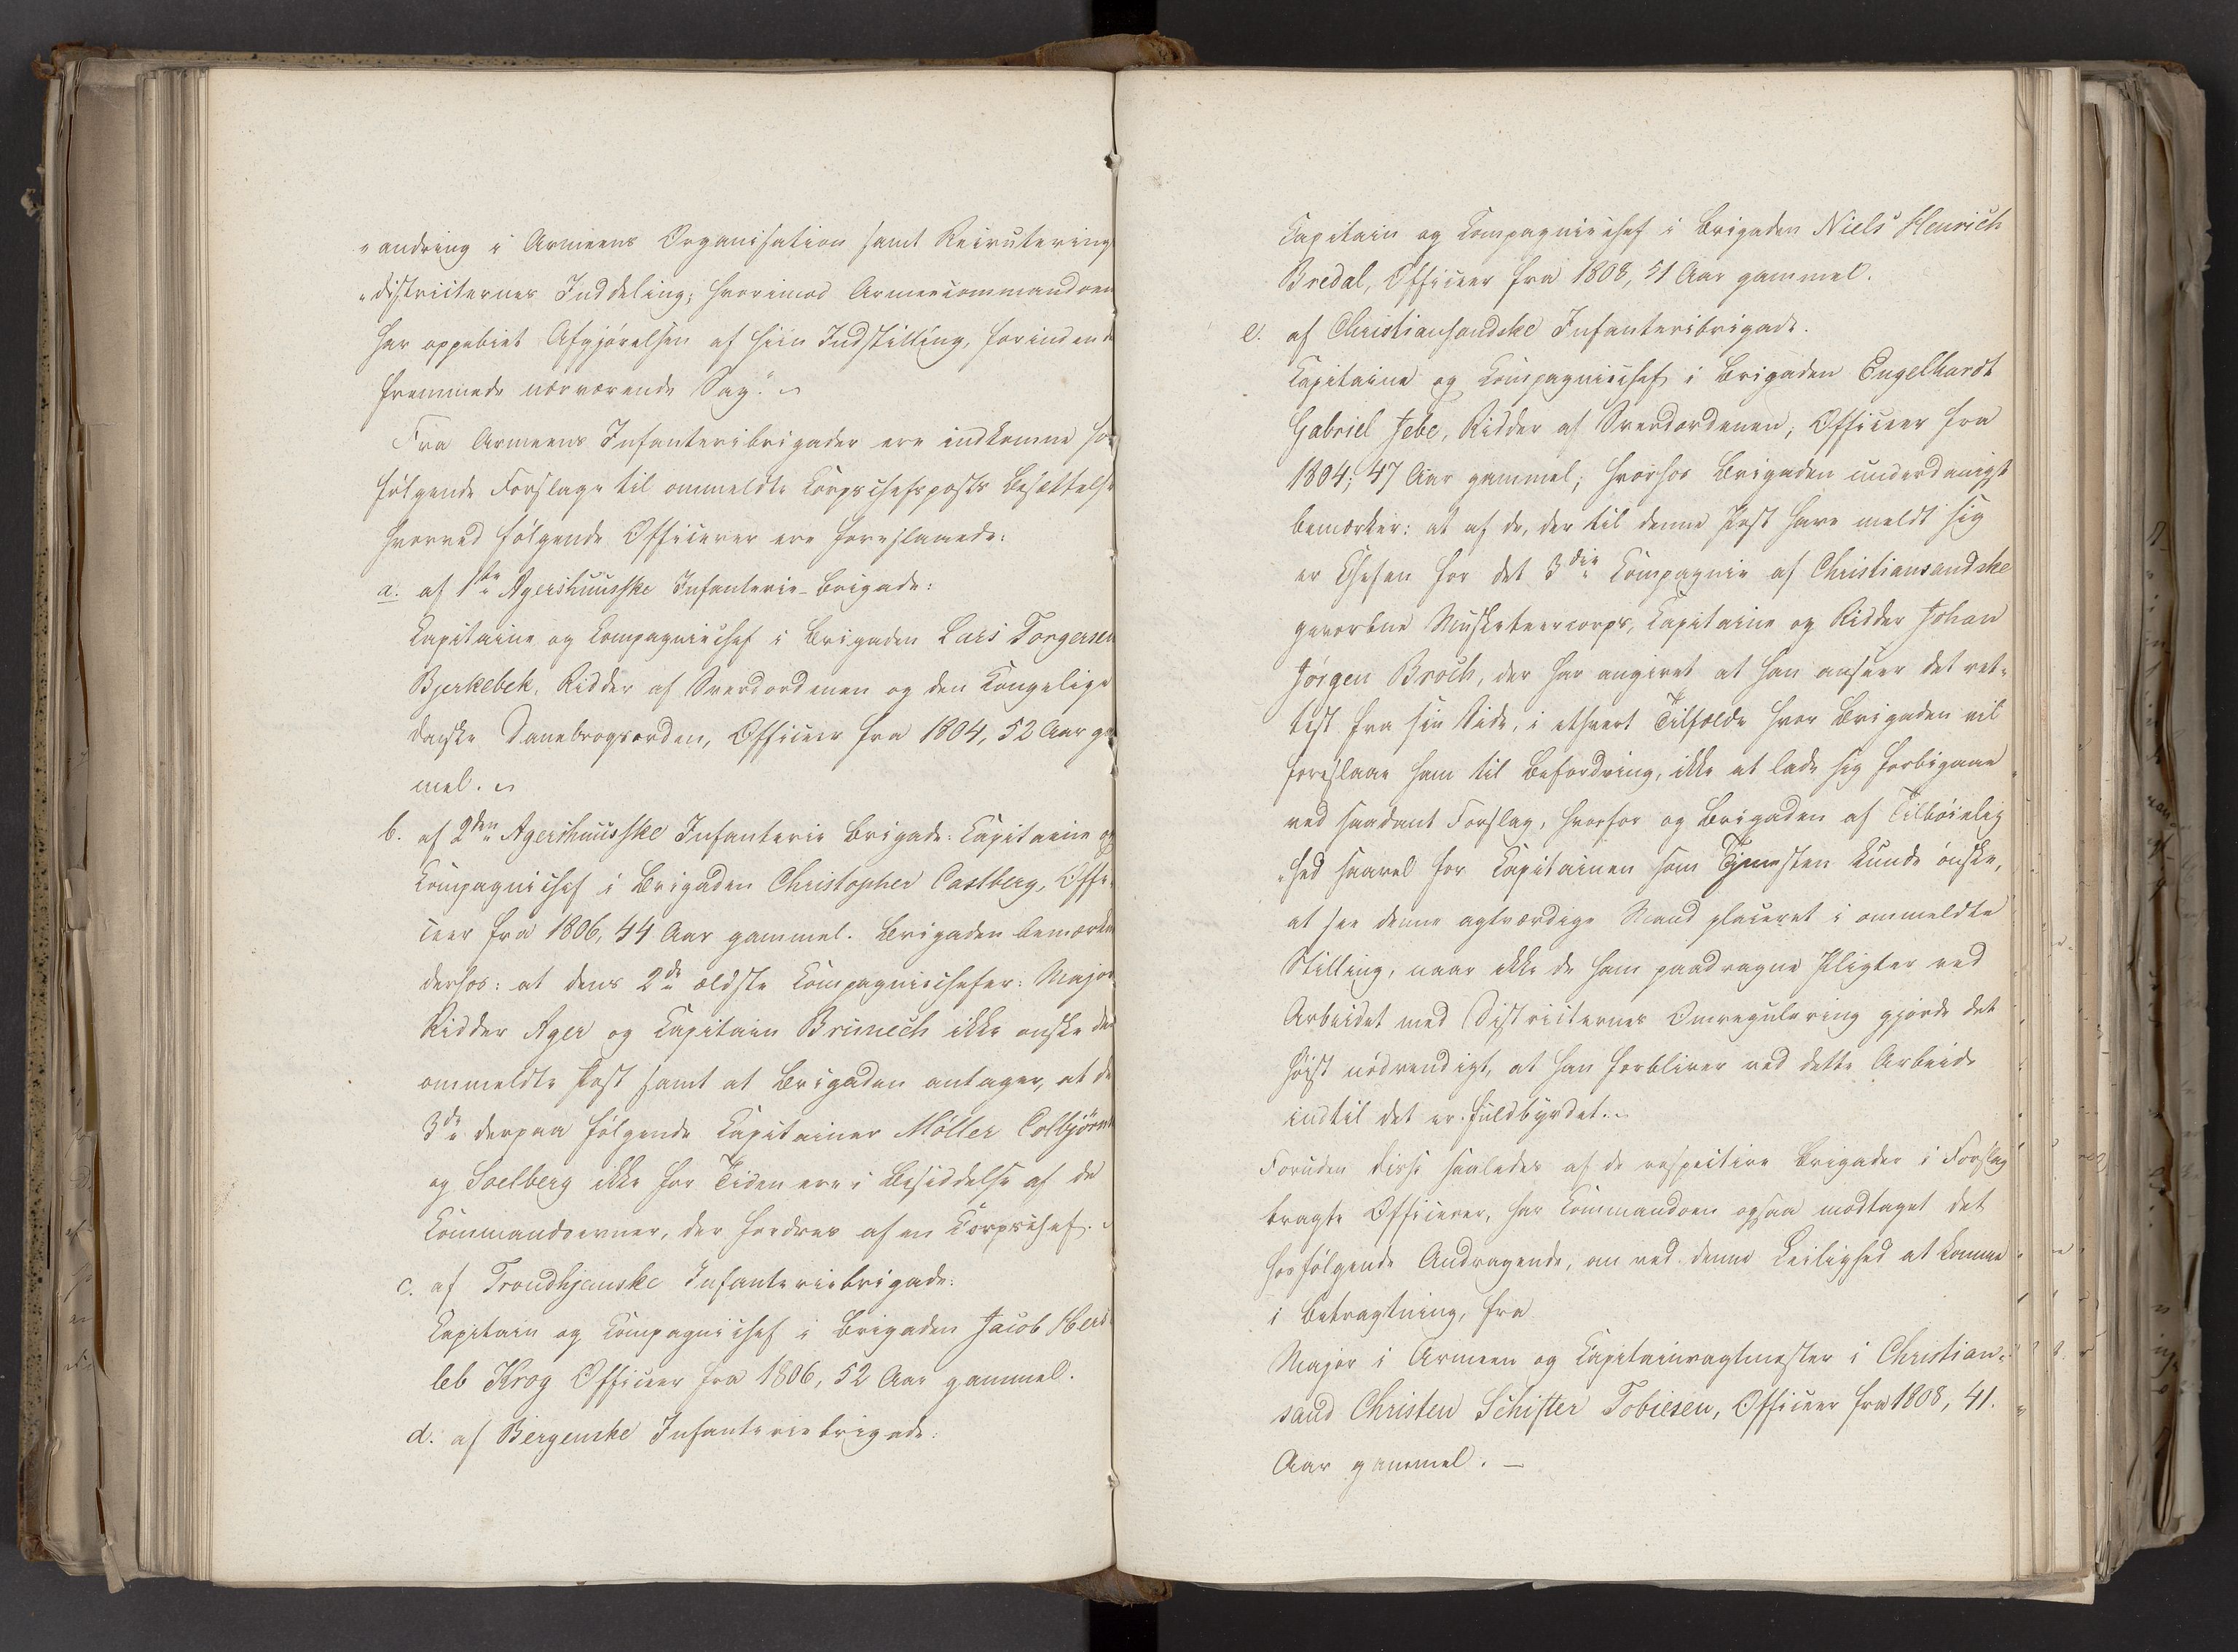 „andring i Armeens Organisation samt Recruterings
„districternes Inddeling; hvorimod Armeecommandoen
har oppebiet Afgjørelsen af hiin Indstilling, forinden de
fremmede nærværende Sag." 
Fra Armeens Infanteribrigader ere indkomne hos
følgende Forslage til ommeldte Corpschefsposts Besættelse
hvorved følgende Officerer ere foreslaaede:
a. af 1ste Agershuusske Infanterie-Brigade:
Capitaine og Compagniechef i Brigaden Lars Torgersen
Bjerkebek, Ridder af Sverdordenen og den Kongelige
danske Danebrogsorden, Officeer fra 1804, 52 Aar gam
mel.
b. af 2den Agershuusske Infanterie Brigade: Capitaine og
Compagnichef i Brigaden Christopher Castberg, Offi-
ceer fra 1806, 44 Aar gammel. Brigaden bemærker
derhos: at dens 2de ældste Compagniechefer: Major
Ridder Ager og Capitain Brunech ikke ønske den
ommeldte Post samt at Brigaden antager, at de
3de derpaa følgende Capitainer Møller Colbjørns
og Soelberg ikke for Tiden ere i Besiddelse af de
Commandoevner, der fordres af en Corpschef.
c. af Trondhjemske Infanteriebrigade:
Capitain og Compagnichef i Brigaden Jacob Hers
leb Krog Officeer fra 1806, 52 Aar gammel.
d. af Bergenske Infanteriebrigade:
Capitain og Compagniechef i Brigaden Niels Henrich
Bredal, Officeer fra 1808, 51 Aar gammel.
e. af Christiansandske Infanteribrigade.
Capitaine og Compagniechef i Brigaden Engelhardt
Gabriel Jebe, Ridder af Sverdordenen, Officeer fra
1804; 47 Aar gammel; hvorhos Brigaden underdanigst
bemærker: at af de, der til denne Post have meldt sig
er Chefen for det 3die Compagnie af Christiansandske
gevorbne Musketeercorps, Capitaine og Ridder Johan
Jørgen Broch, der har angivet at han anseer det ret-
test fra sin Side, i ethvert Tilfælde hvor Brigaden vil
foreslaae ham til Befordring, ikke at lade sig forbigaae
ved saadant Forslag, hvorfor og Brigaden af Tilbøielig
„hed saavel for Capitainen som Tjenesten kunde ønske,
at see denne agtværdige Mand placeret i ommeldte
Stilling, naar ikke de ham paadragne Pligter ved
Arbeidet med Districternes Omregulering gjorde det
høist nødvendigt, at han forbliver ved dette Arbeide
indtil det er fuldbyrdet.
Foruden disse saaledes af de respective Brigader i Forslag
bragte Officerer, har Commandoen ogsaa modtaget det
hosfølgende Andragende, om ved denne Leilighed at komme
i Betragtning, fra
Major i Armeen og Capitainvagtmester i Christian-
sand Christen Schifter Tobiesen, Officeer fra 1808, 41.
Aar gammel. —